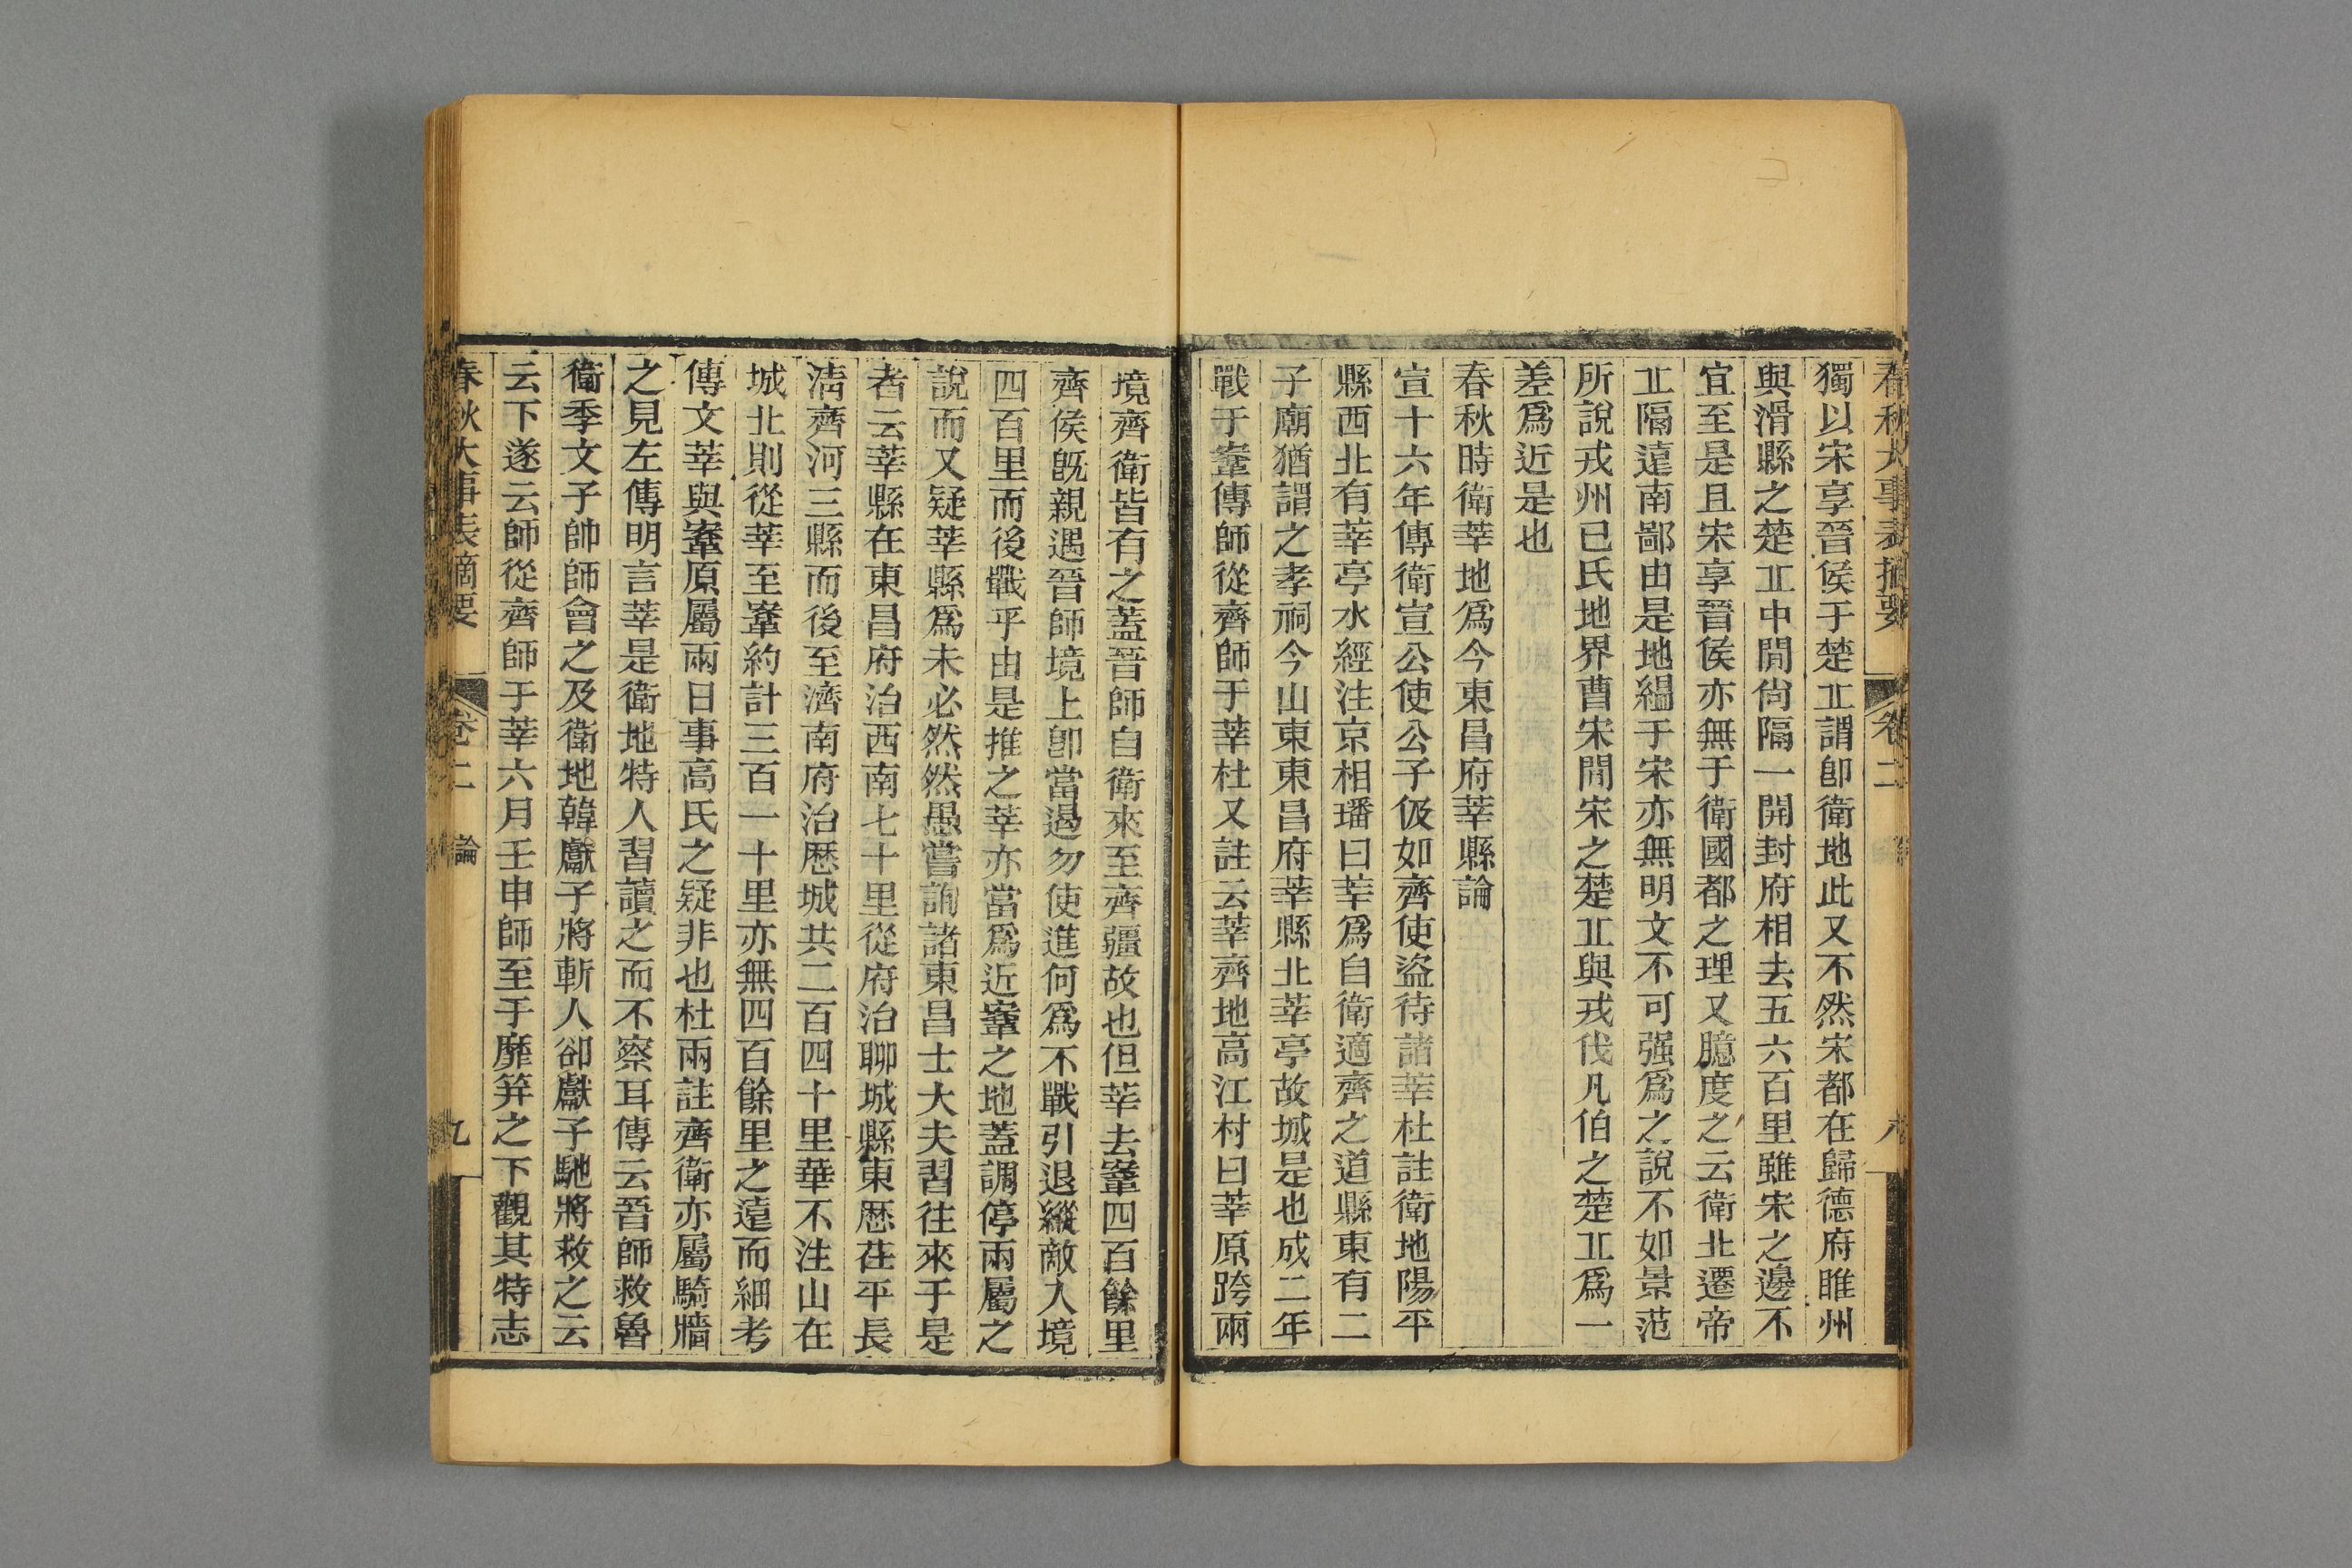 春秋大事表摘要 卷二 八
獨以宋享晉侯于楚丠謂卽衛地此又不然宋都在歸德府睢州
與滑縣之楚丠中閒尙隔一開封府相去五六百里雖宋之邊不
宜至是且宋享晉侯亦無于衛國都之理又臆度之云衛北遷帝
丠隔遠南鄙由是地緼于宋亦無明文不可强爲之說不如景范
所說戎州已氏地界曹宋閒宋之楚丠與戎伐凡伯之楚丠爲一
差爲近是也
春秋時衛莘地爲今東昌府莘縣論
宣十六年傳衛宣公使公子伋如齊使盜待諸莘杜註衛地陽平
縣西北有莘亭水經注京相璠曰莘爲自衛適齊之道縣東有二
子廟猶謂之孝祠今山東東昌府莘縣北莘亭故城是也成二年
戰于鞌傳師從齊師于莘杜又註云莘齊地高江村曰莘原跨兩
境齊衛皆有之蓋晉師自衛來至齊疆故也但莘去鞌四百餘里
齊侯旣親遇晉師境上卽當遏勿使進何爲不戰引退縱敵入境
四百里而後戰乎由是推之莘亦當爲近鞌之地蓋調停兩屬之
說而又疑莘縣爲未必然然愚嘗詢諸東昌士大夫習往來于是
者云莘縣在東昌府治西南七十里從府治聊城縣東歷茌平長
淸齊河三縣而後至濟南府治歷城共二百四十里華不注山在
城北則從莘至鞌約計三百一十里亦無四百餘里之遠而細考
傳文莘與鞌原屬兩日事高氏之疑非也杜兩註齊衛亦屬騎牆
之見左傳明言莘是衛地特人習讀之而不察耳傳云晉師救魯
衛季文子帥師會之及衛地韓獻子將斬人卻獻子馳將救之云
云下遂云師從齊師于莘六月壬申師至于靡筓之下觀其特志
春秋大事表摘要 卷二 論 九